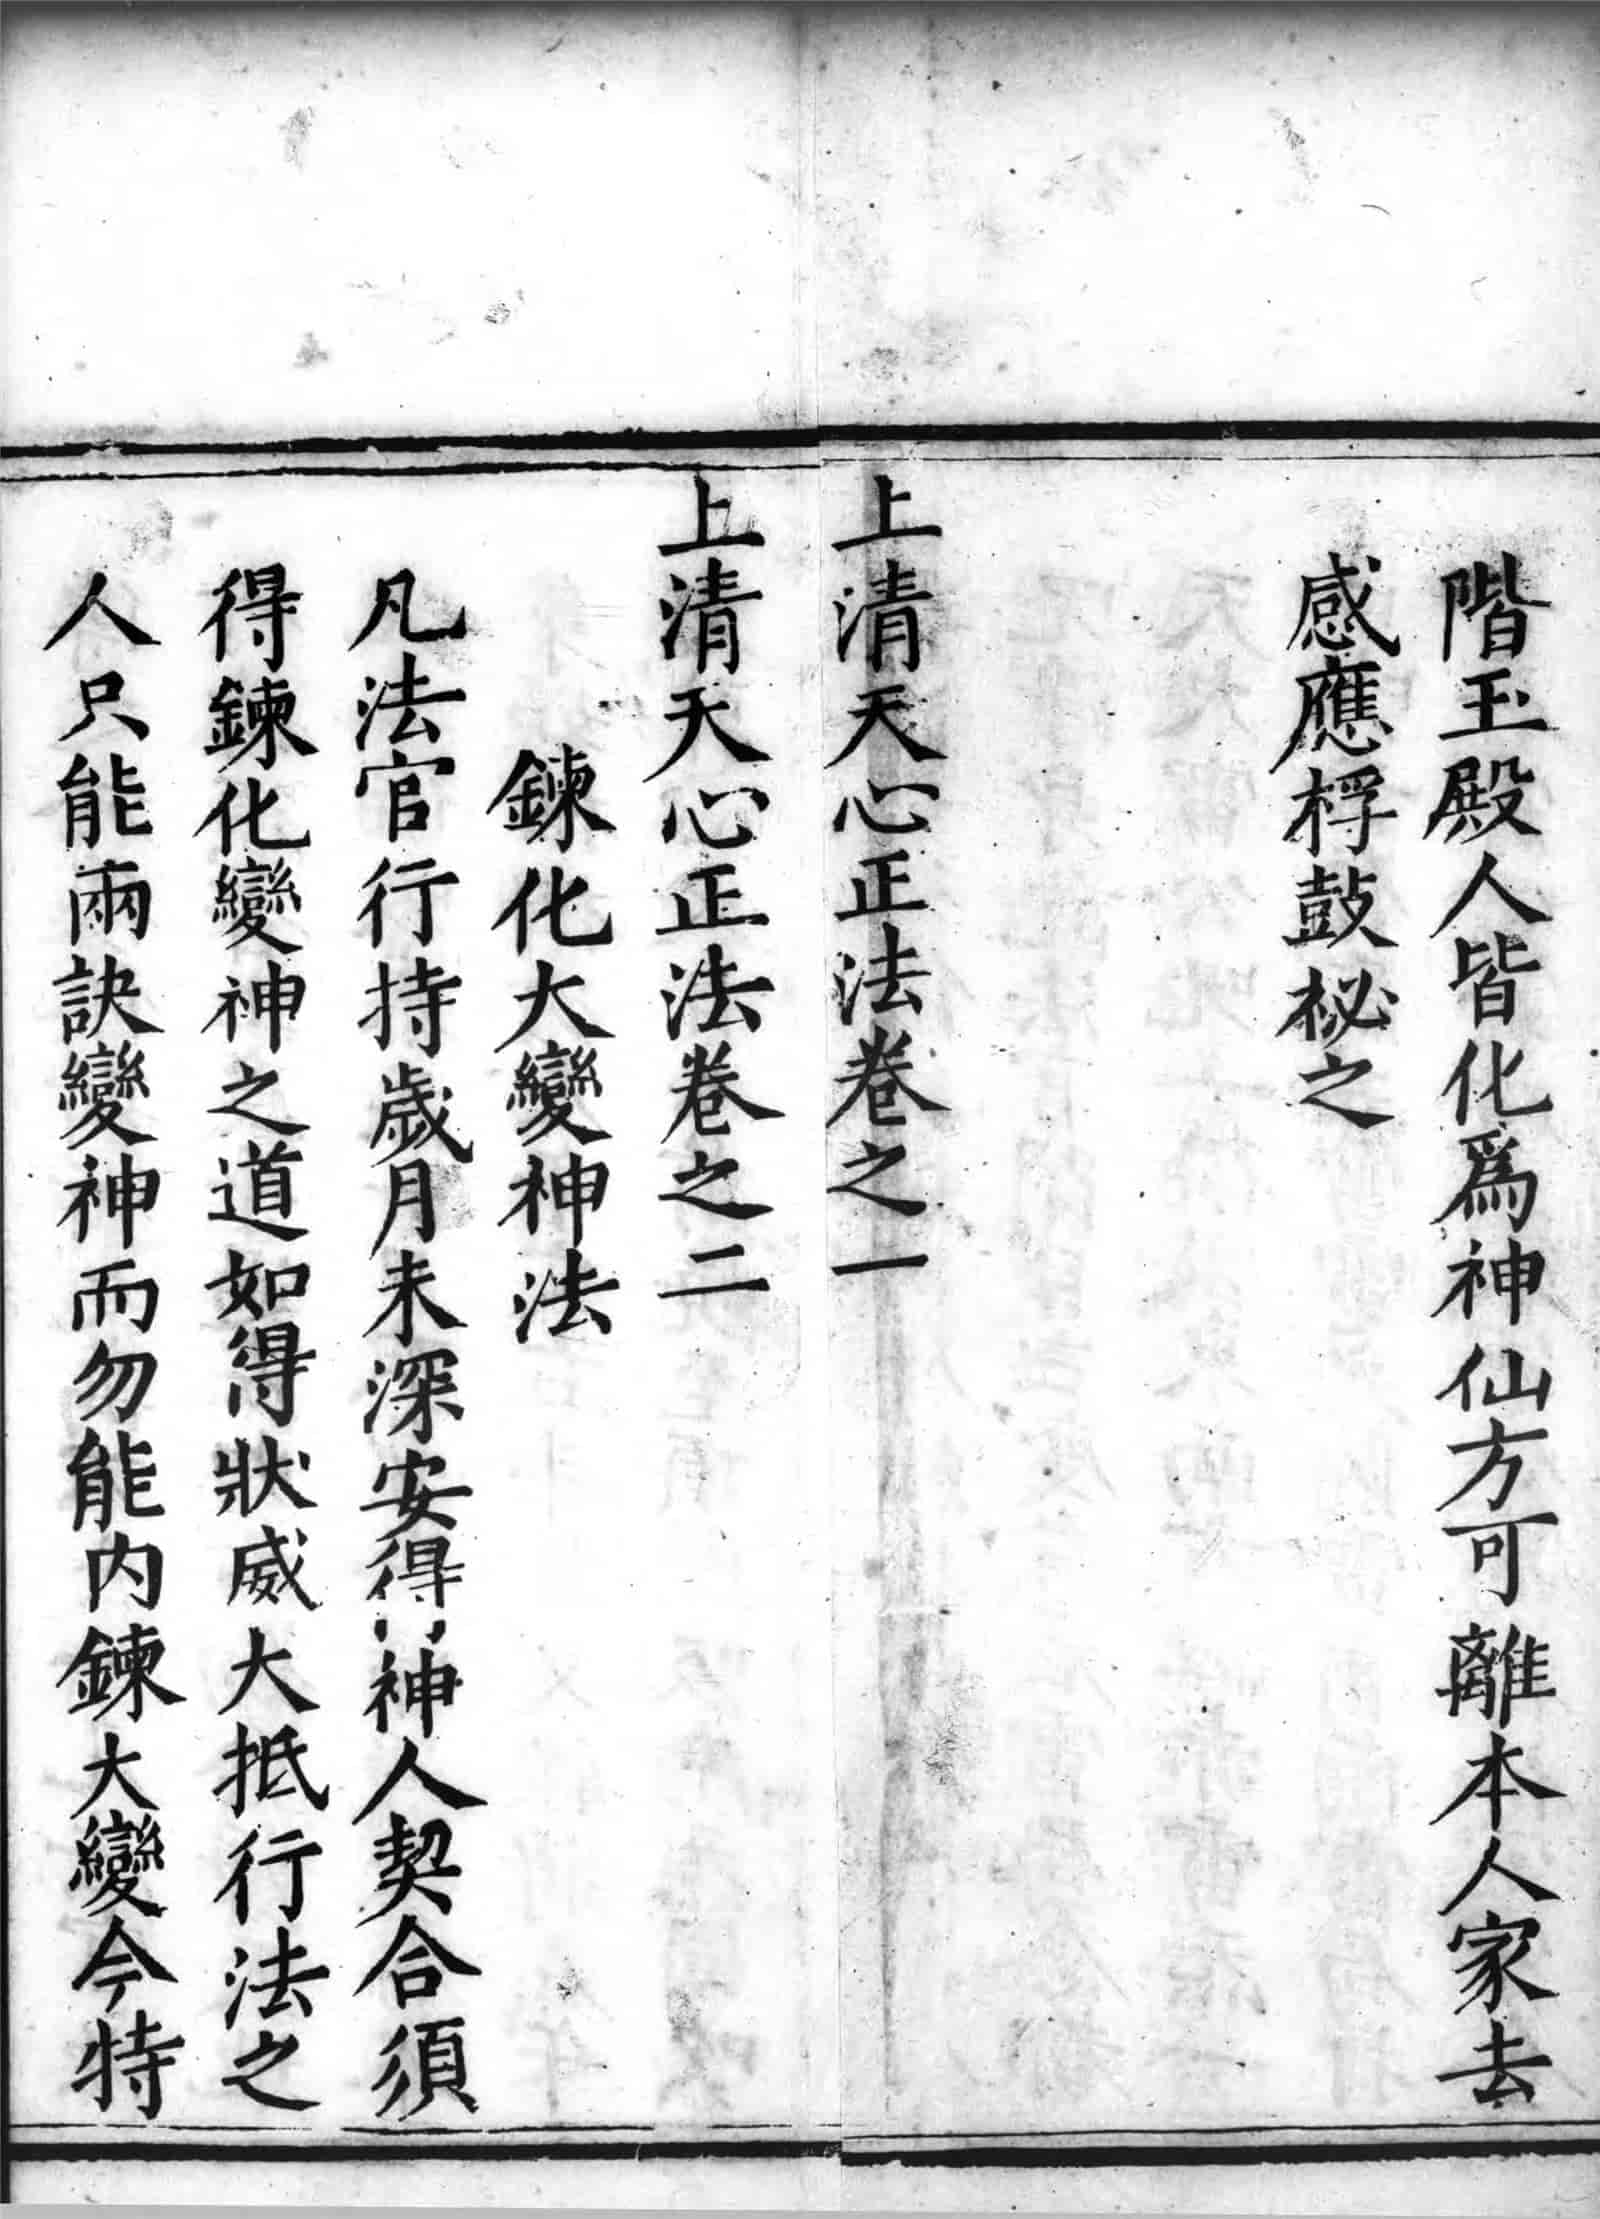 階玉殿人皆化爲神仙方可離本人家去
感應桴鼓祕之
上清天心正法卷之一
上清天心正法卷之二
鍊化大變神法
凡法官行持歲月未深安得神人契合須
得鍊化變神之道如得狀威大抵行法之
人只能兩訣變神而勿能内鍊大變今特